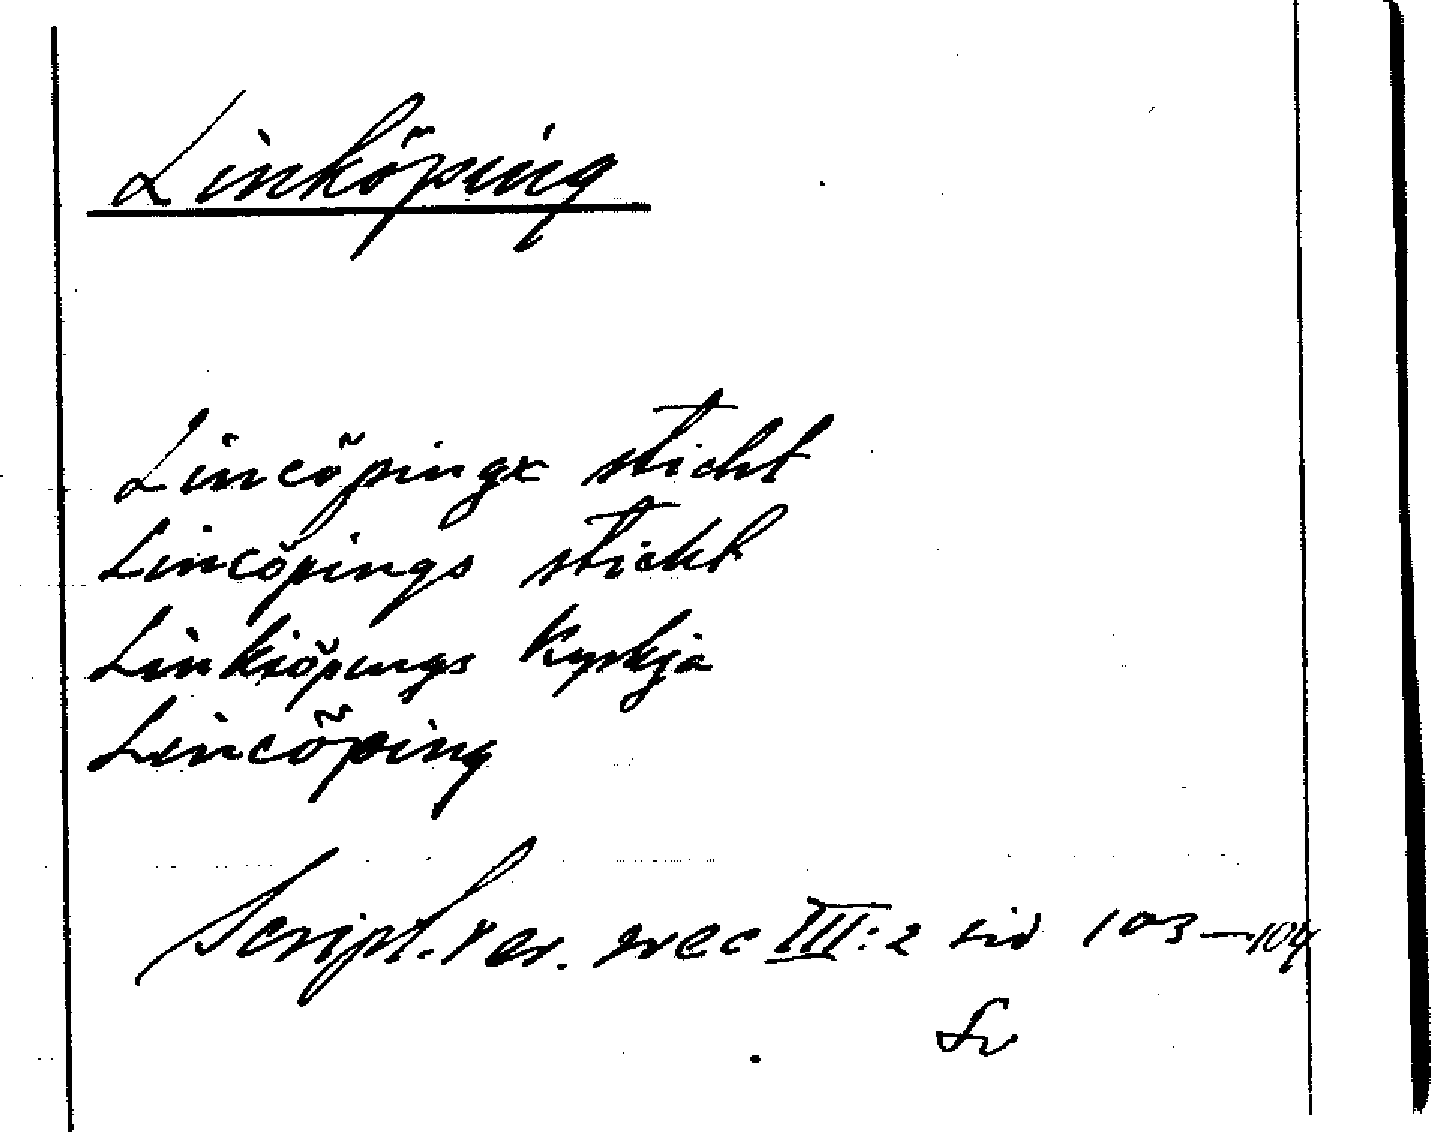 Linköping
Lincöpingx sticht
Lincöpings stickt
Linkiöpings Kyrkja
Lincöping
Script. rer. svec III:2 sid 103—104
Sv